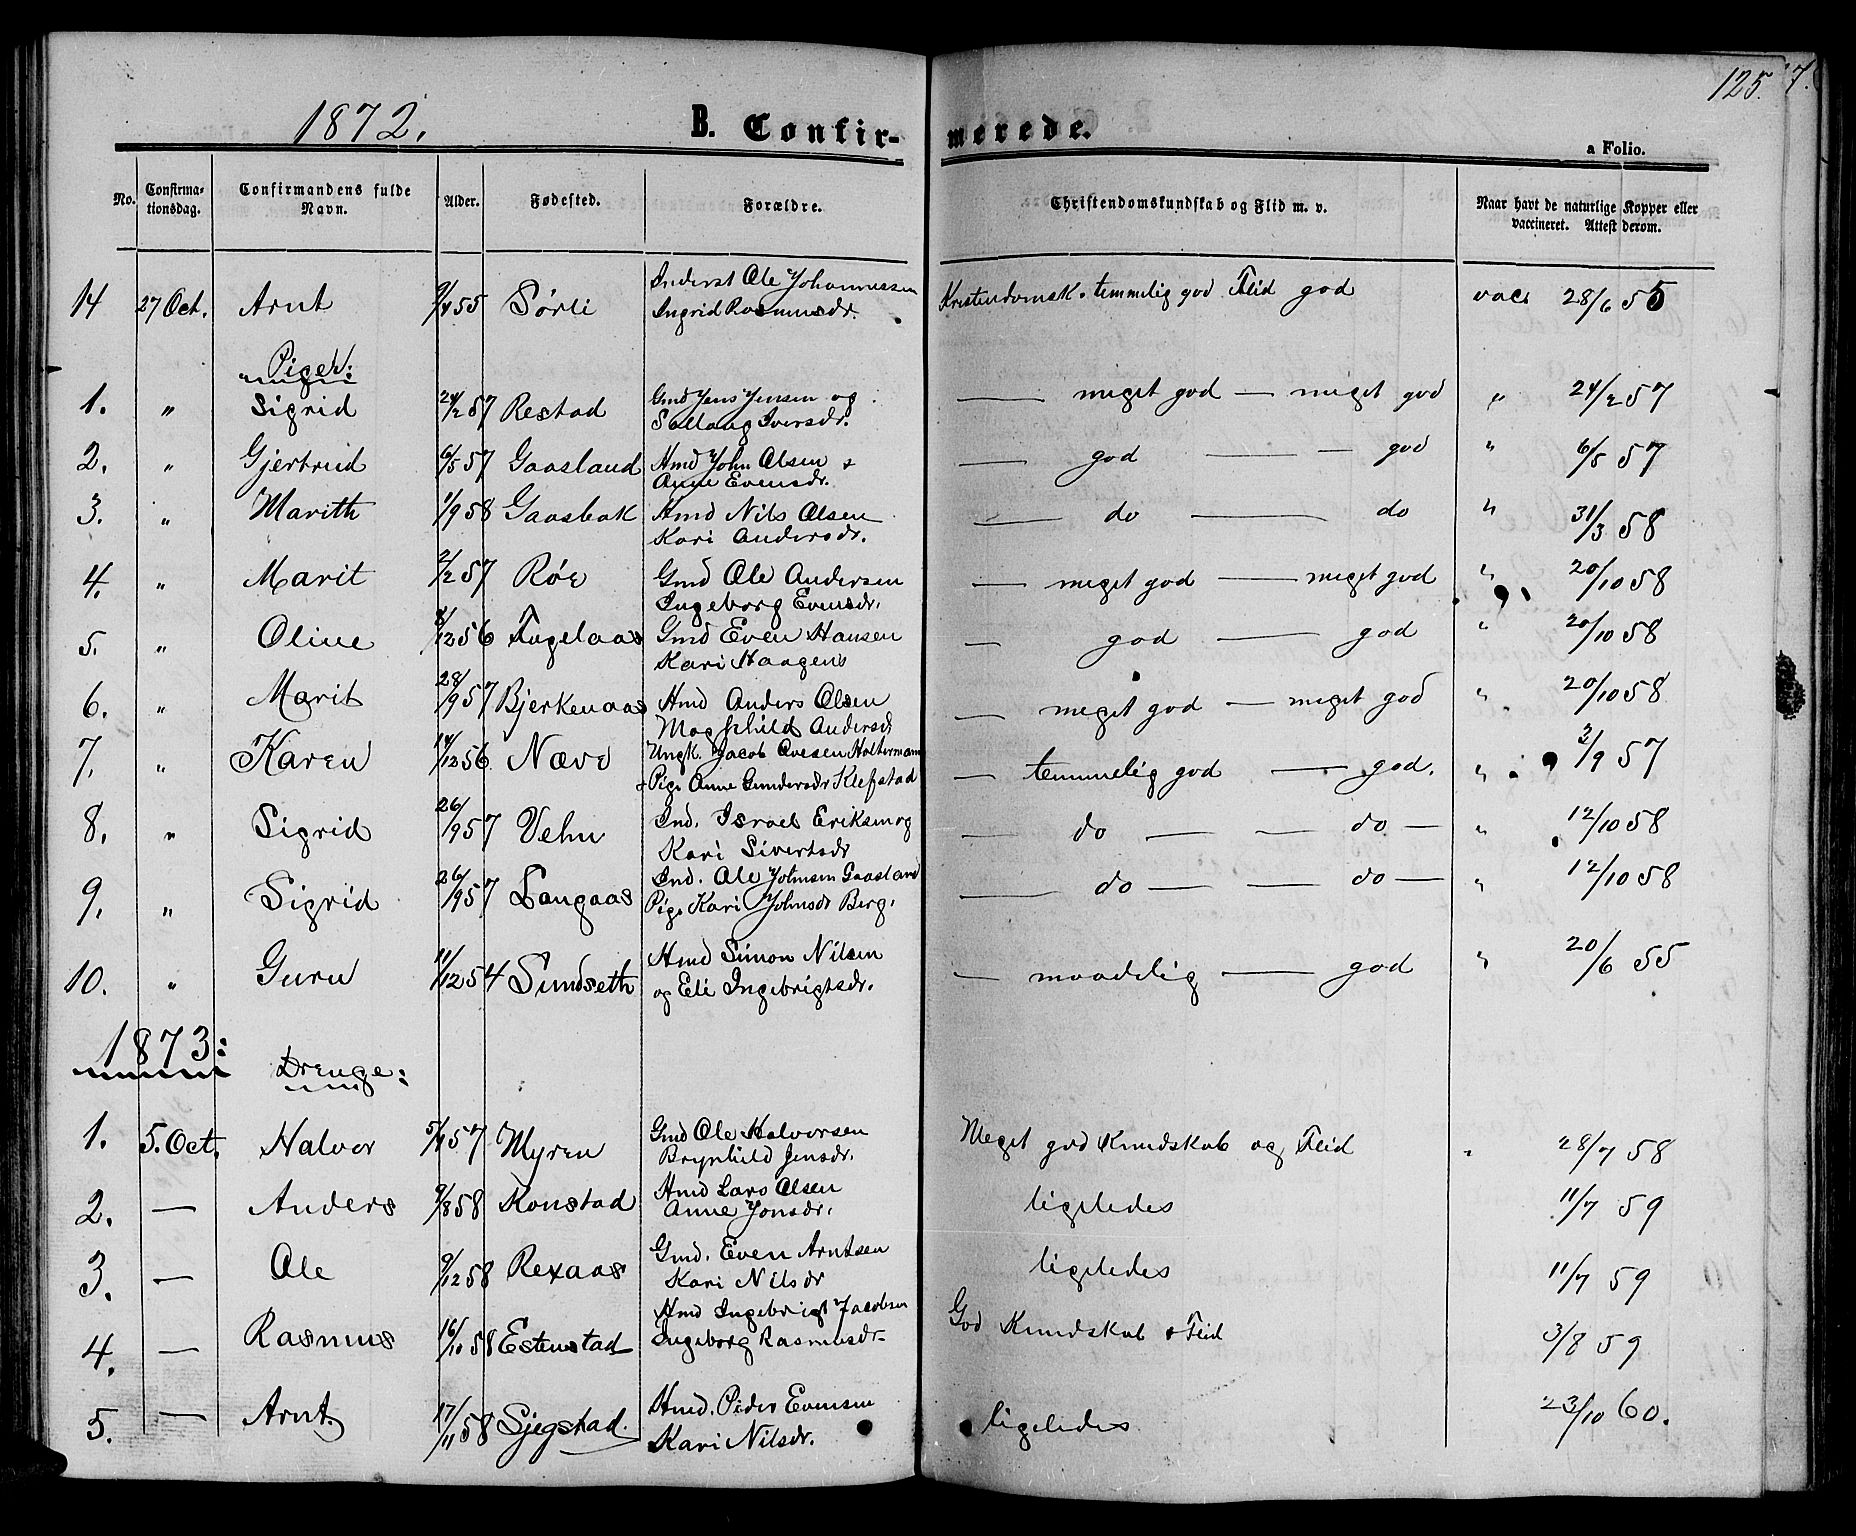 125. 7.
1872. B. Confir- merede.
a Folio.
No. Confirma-tionsdag. Confirmandens fulde Navn. Alder. Fødested. Forældre. Christendomskundskab og Flid m. v. Naar havt de naturlige Kopper eller vaccineret. Attest derom.
14 27 Oct. Arnt 9/4 55 Sörli Inderst Ole Johannessen Kristendomsk. temmelig god Flid god vac. 28/6 55
Ingrid Rasmusdr.
Piger:
1. " Sigrid 24/2 57 Restad Gmd Jens Jensen og — meget god — meget god " 24/2 57
Sollaug Iversdr.
2. " Gjertrud 6/5 57 Gaasland Hmd John Olsen + — god — god " 6/5 57
Anne Evensdr.
3. " Marith 1/9 58 Gaasbak Hmd Nils Olsen — do — do " 31/3 58
Kari Andersdr.
4. " Marit 2/2 57 Röe Gmd Ole Andersen — meget god — meget god " 20/10 58
Ingeborg Evensdr.
5. " Oline 8/12 56 Fugelaas Gmd Even Hansen — god — god " 20/10 58
Kari Haagens
6. " Marit 28/9 57 Bjerkenaas Hmd Anders Olsen — meget god — meget god " 20/10 58
Maghild Andersd
7. " Karen 14/12 56 Næve Ungk. Jacob Ovesen Holtermann — temmelig god — god. " 3/9 57
+ Pige Anne Gundersdr Klefstad
8. " Sigrid 26/9 57 Vehn Ind. Israel Eriksen og — do — — do — " 12/10 58
Kari Sivertsdr
9. " Sigrid 26/9 57 Langaas Ind. Ole Johnsen Gaasland — do — — do — " 12/10 58
Pige Kari Johnsdr Berg.
10. " Guru 11/12 54 Sundseth Hmd Simon Nilsen — maadelig — god " 20/6 55
og Eli Ingebrigtsdr.
1873:
Drenge:
1. 5. Oct. Halvor 5/4 57 Myren Gmd Ole Halvorsen Meget god Kundskab og Flid " 28/7 58
Brynhild Jensdr.
2. — Anders 9/8 58 Konstad Hmd Lars Olsen ligeledes 11/7 59
Anne Jonsdr.
3. — Ole 9/12 58 Rexaas Gmd. Even Arntsen ligeledes 11/7 59
Kari Nilsdr
4. — Rasmus 16/10 58 Estenstad Hmd Ingebrigt Jacobsen God Kundskab + Flid 3/8 59
Ingeborg Rasmusdr
5. — Arnt 17/11 58 Sjegstad Hmd. Peder Evensen ligeledes 23/10 60.
Kari Nilsdr.